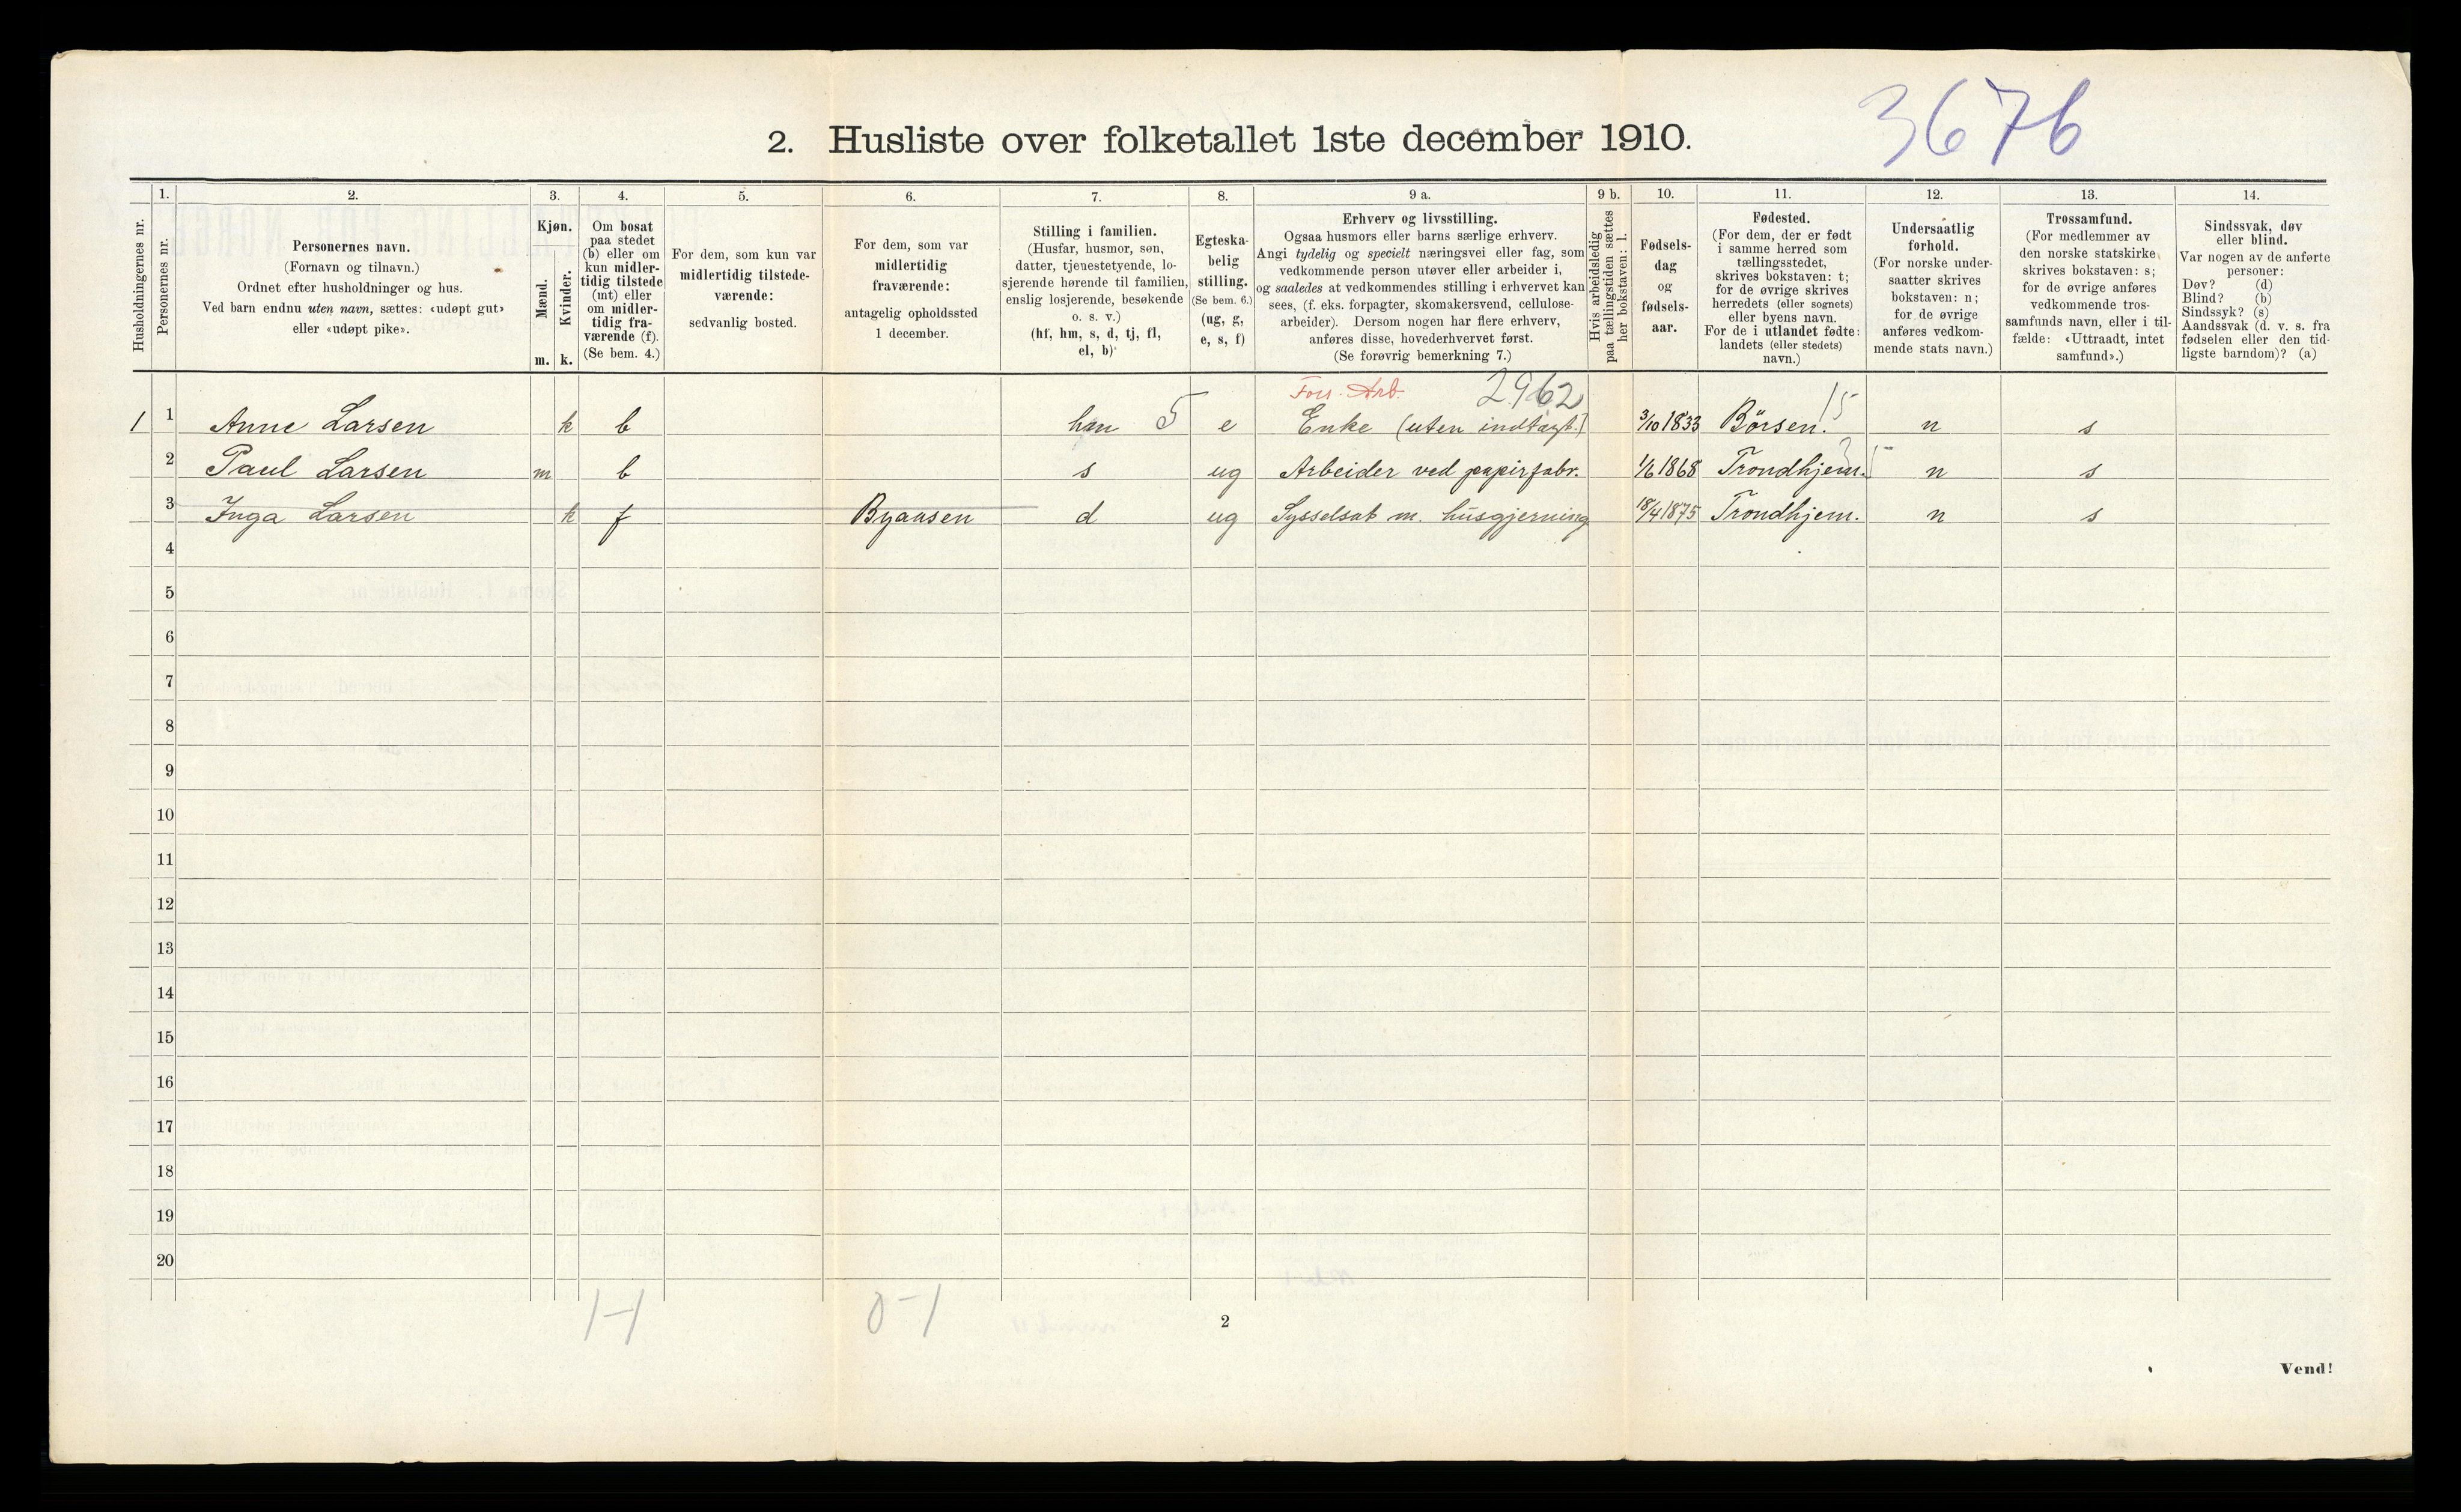 3676
2. Husliste over folketallet 1ste december 1910.
Husholdningernes nr.
1.
Personernes nr.
2.
Personernes navn.
(Fornavn og tilnavn.)
Ordnet efter husholdninger og hus.
Ved barn endnu uten navn, sættes: «udøpt gut»
eller «udøpt pike».
3.
Kjøn.
Mænd.
Kvinder.
m. k.
4.
Om bosat
paa stedet
(b) eller om
kun midler-
tidig tilstede
(mt) eller
om midler-
tidig fra-
værende (f).
(Se bem. 4.)
5.
For dem, som kun var
midlertidig tilstede-
værende:
sedvanlig bosted.
6.
For dem, som var
midlertidig
fraværende:
antagelig opholdssted
1 december.
7.
Stilling i familien.
(Husfar, husmor, søn,
datter, tjenestetyende, lo-
sjerende hørende til familien,
enslig losjerende, besøkende
o. s. v.)
(hf, hm, s, d, tj, fl,
el, b)
8.
Egteska-
belig
stilling.
(Se bem. 6.)
(ug, g,
e, s, f)
9 a.
Erhverv og livsstilling.
Ogsaa husmors eller barns særlige erhverv.
Angi tydelig og specielt næringsvei eller fag, som
vedkommende person utøver eller arbeider i,
og saaledes at vedkommendes stilling i erhvervet kan
sees, (f. eks. forpagter, skomakersvend, cellulose-
arbeider). Dersom nogen har flere erhverv,
anføres disse, hovederhvervet først.
(Se forøvrig bemerkning 7.)
9 b.
Hvis arbeidsledig
paa tællingstiden sættes
her bokstaven: l.
10.
Fødsels-
dag
og
fødsels-
aar.
11.
Fødested.
(For dem, der er født
i samme herred som
tællingsstedet,
skrives bokstaven: t;
for de øvrige skrives
herredets (eller sognets)
eller byens navn.
For de i utlandet fødte:
landets (eller stedets)
navn.)
12.
Undersaatlig
forhold.
(For norske under-
saatter skrives
bokstaven: n;
for de øvrige
anføres vedkom-
mende stats navn.)
13.
Trossamfund.
(For medlemmer av
den norske statskirke
skrives bokstaven: s;
for de øvrige anføres
vedkommende tros-
samfunds navn, eller i til-
fælde: «Uttraadt, intet
samfund».)
14.
Sindssvak, døv
eller blind.
Var nogen av de anførte
personer:
Døv? (d)
Blind? (b)
Sindssyk? (s)
Aandssvak (d. v. s. fra
fødselen eller den tid-
ligste barndom)? (a)
Fors. Arb. 2962
1 1 Anne Larsen k b hm 5 e Enke (uten indtægt.) 3/10 1833 Börsen. 15 n s
2 Paul Larsen m b s ug Arbeider ved papirfabr. 1/6 1868 Trondhjem. n s
3 Inga Larsen k f Byaasen d ug Sysselsat m. husgjerning 18/4 1875 Trondhjem. n s
4
5
6
7
8
9
10
11
12
13
14
15
16
17
18
19
20
1-1 0-1
2
Vend!